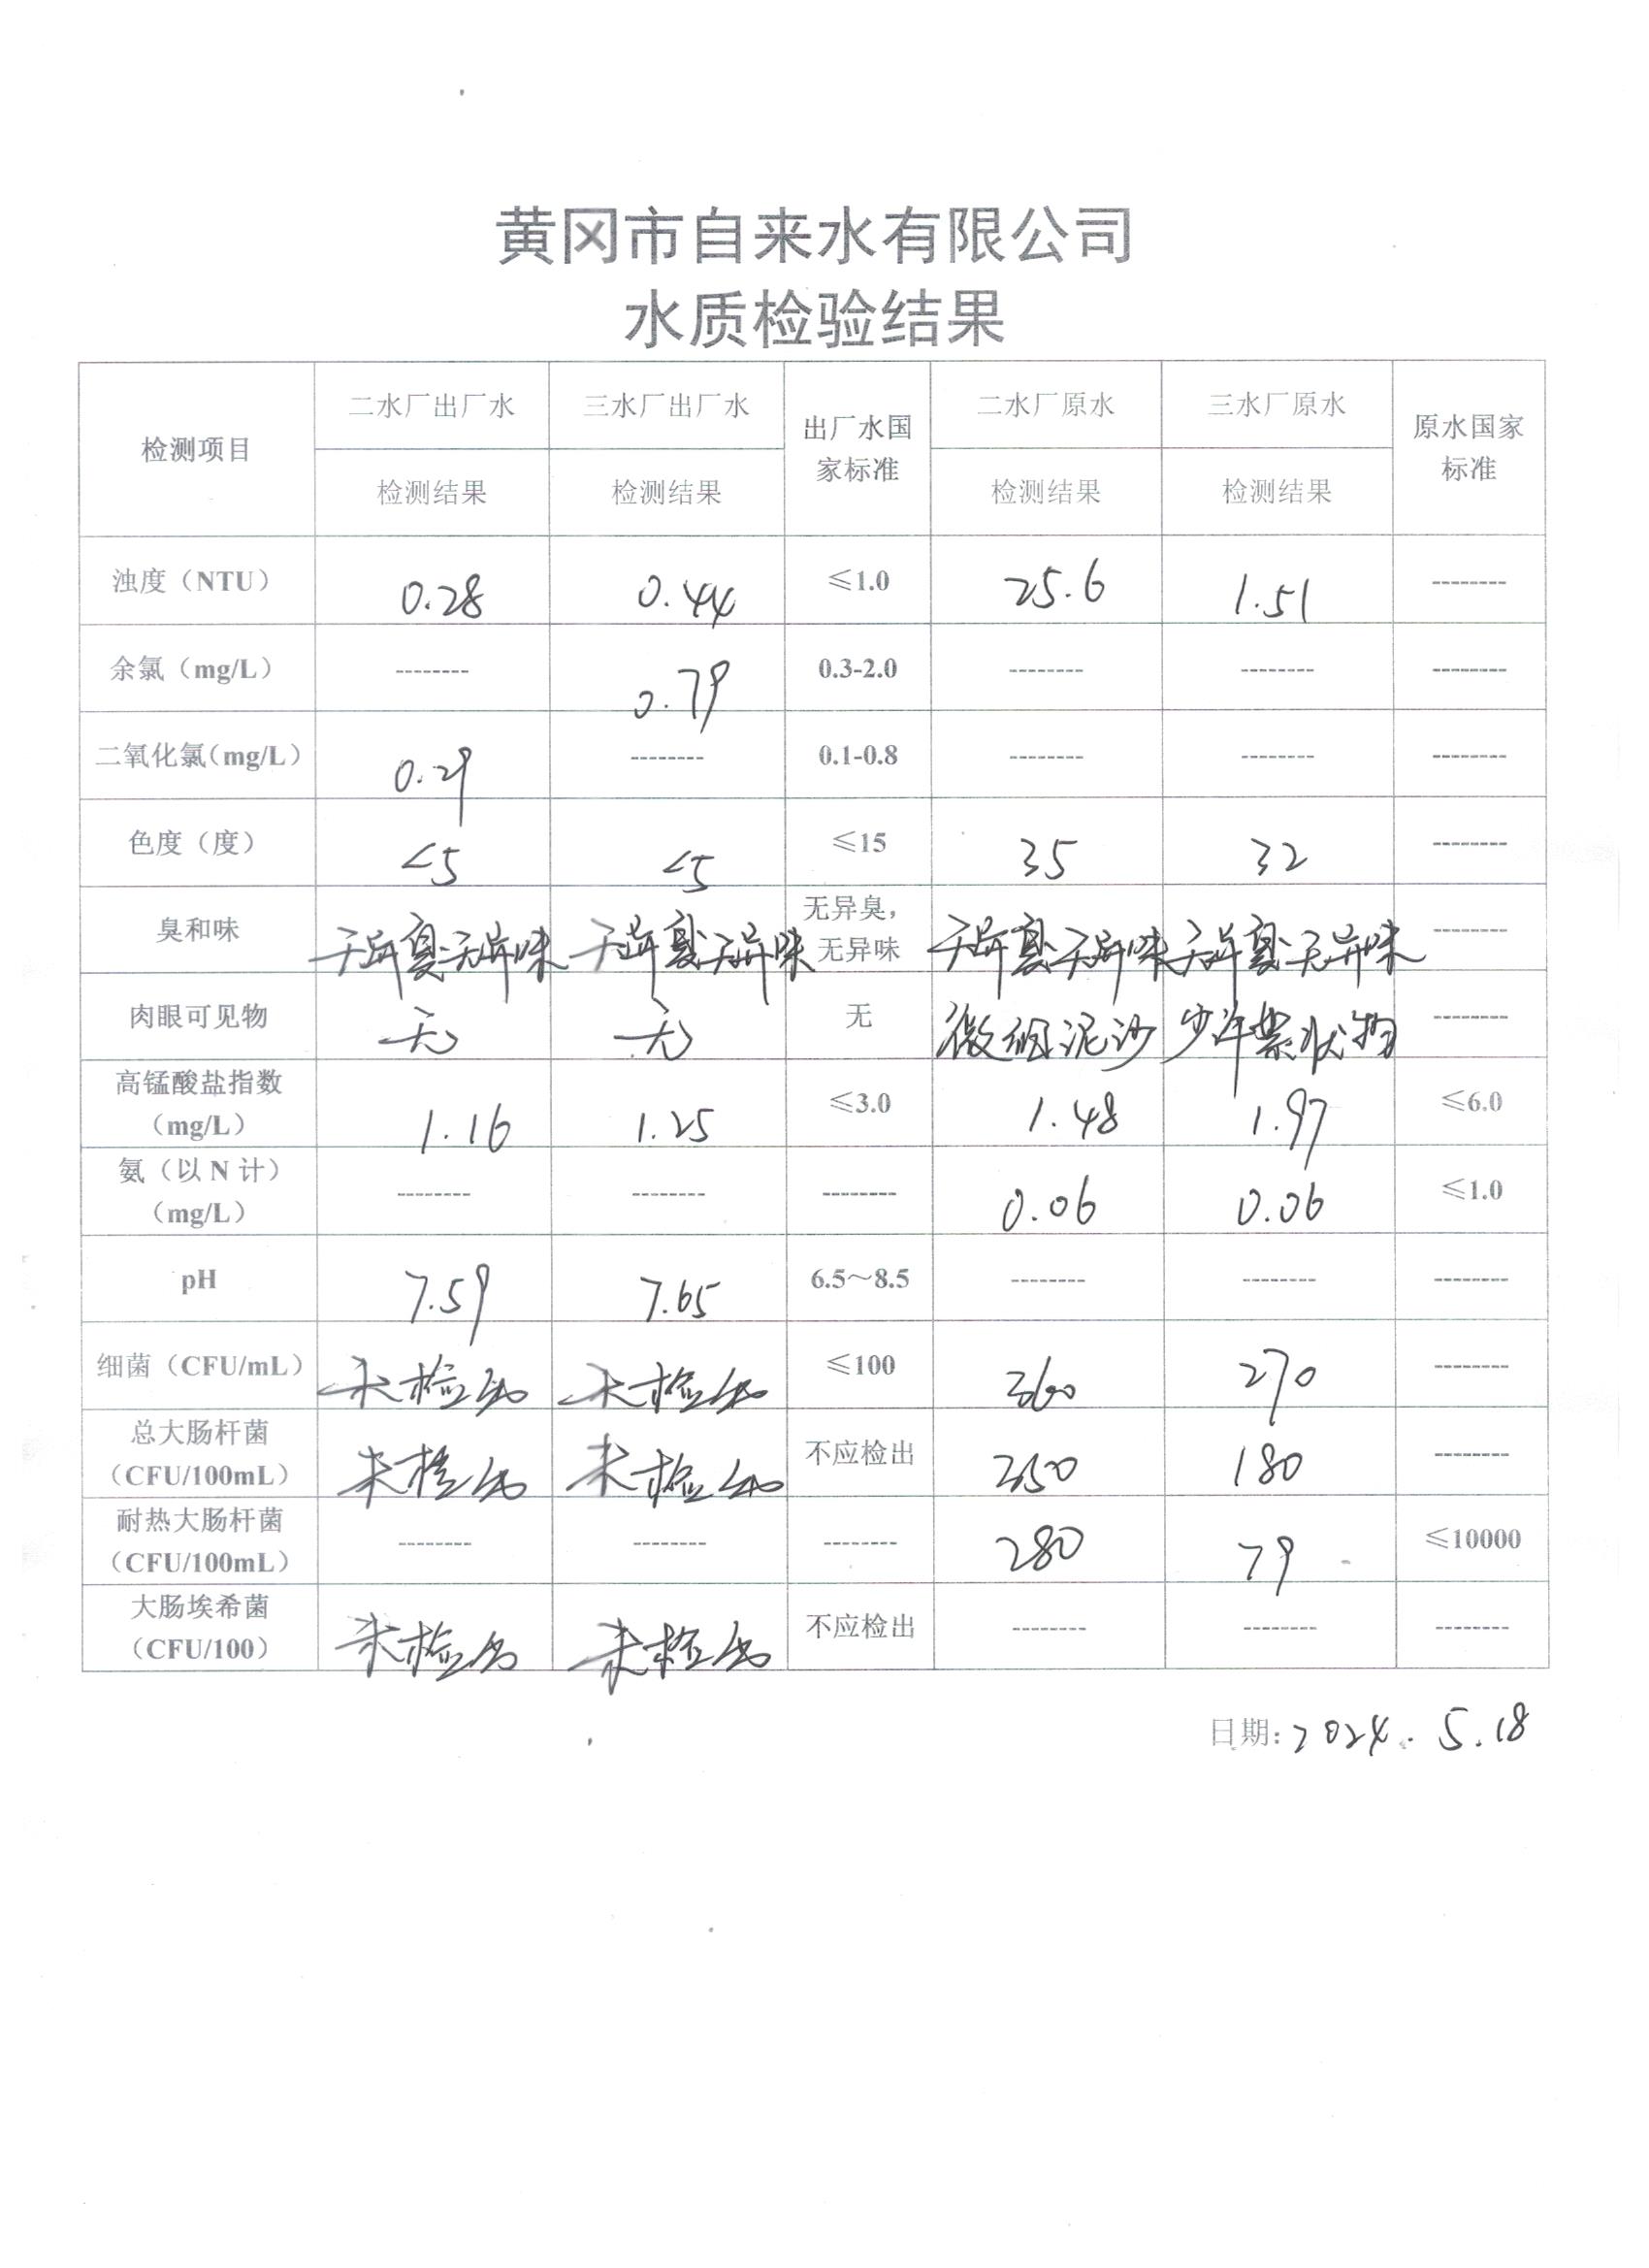 黄冈市自来水有限公司
水质检验结果
检测项目 二水厂出厂水 三水厂出厂水 出厂水国家标准 二水厂原水 三水厂原水 原水国家标准
检测结果 检测结果 检测结果 检测结果
浊度（NTU） 0.28 0.44 ≤1.0 25.6 1.51 --------
余氯（mg/L） -------- 0.79 0.3-2.0 -------- -------- --------
二氧化氯（mg/L） 0.29 -------- 0.1-0.8 -------- -------- --------
色度（度） <5 <5 ≤15 35 32 --------
臭和味 无异臭无异味 无异臭无异味 无异臭，无异味 无异臭无异味 无异臭无异味 --------
肉眼可见物 无 无 无 微细泥沙 少许絮状物 --------
高锰酸盐指数（mg/L） 1.16 1.25 ≤3.0 1.48 1.97 ≤6.0
氨（以 N 计）（mg/L） -------- -------- -------- 0.06 0.06 ≤1.0
pH 7.59 7.65 6.5～8.5 -------- -------- --------
细菌（CFU/mL） 未检出 未检出 ≤100 360 270 --------
总大肠杆菌（CFU/100mL） 未检出 未检出 不应检出 350 180 --------
耐热大肠杆菌（CFU/100mL） -------- -------- -------- 280 79 ≤10000
大肠埃希菌（CFU/100） 未检出 未检出 不应检出 -------- -------- --------
日期: 2024.5.18